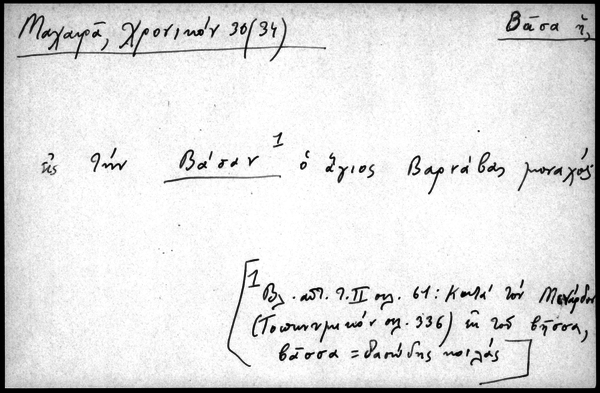 Μαχαιρᾶ, Χρονικόν 30(34)
Βᾶσα ἡ,
εἰς τὴν Βάσαν¹ ὁ ἅγιος Βαρνάβας μοναχός
[1 Βλ. αὐτ. τ. II σελ. 61: Κατὰ τὸν Μενάρδον
(Τοπωνυμικόν σελ. 336) ἐκ τοῦ βῆσσα,
βᾶσσα = δασώδης κοιλάς]